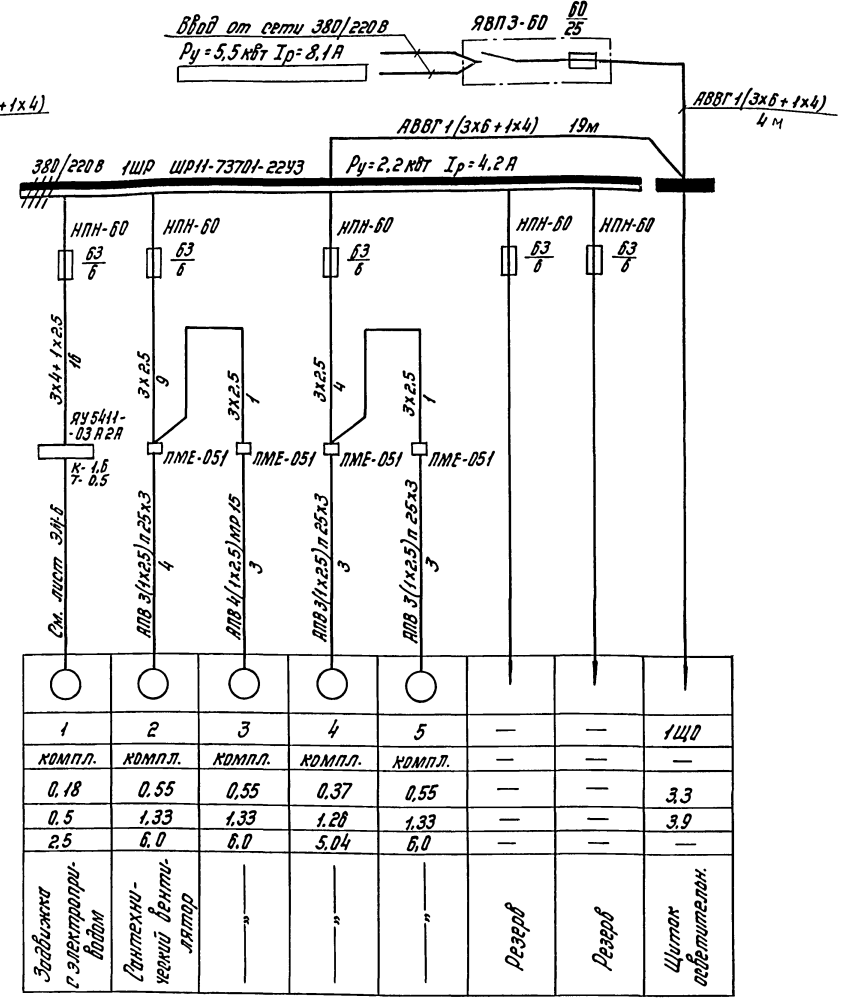 Ввод от сети 380/220В
Ру=5,5 квт Iр=8,1А
ЯВПЗ-60 60/25
+1х4)
АВВГ 1/3х6+1х4)
4 м
АВВГ 1/(3х6+1х4) 19м
380/220В 1ШР ШР11-73701-22У3 Ру=2,2 квт Iр=4,2 А
НПН-60 НПН-60 НПН-60 НПН-60 НПН-60
63/6 63/6 63/6 63/6 63/6
3х4+1х2.5
16
3х2.5
9
3х2.5
1
3х2.5
4
3х2.5
1
ЯУ5411-
-03А2А
К-1,6
Т-0.5
ПМЕ-051 ПМЕ-051 ПМЕ-051 ПМЕ-051
См. лист ЭМ-6
АПВ 3(1х2.5)п 25х3
4
АПВ 4(1х2.5)МР 15
3
АПВ 3(1х2.5)п 25х3
3
АПВ 3(1х2.5)п 25х3
3
1 2 3 4 5 — — 1ЩО
компл. компл. компл. компл. компл. — — —
0,18 0.55 0,55 0,37 0,55 — — 3,3
0.5 1,33 1.33 1.26 1,33 — — 3,9
2.5 6,0 6,0 5,04 6,0 — — —
Задвижка
с электропри-
водом
Сантехни-
ческий венти-
лятор
—„—
—„—
—„—
Резерв
Резерв
Щиток
осветителон.